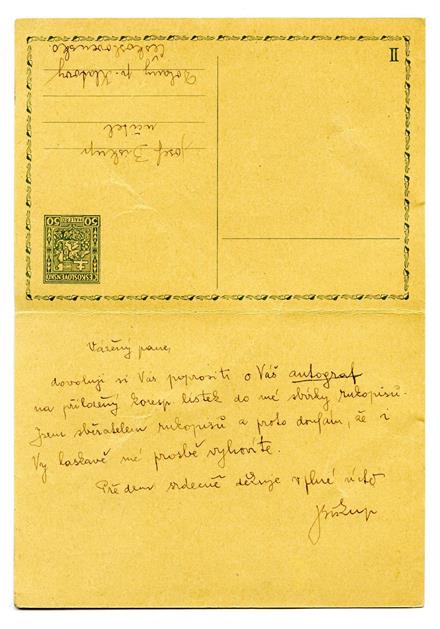 II
Josef Biskup
učitel
Dolany p. Klatovy
Československo.
50 50
ČESKOSLOVENSKO
Vážený pane,
dovoluji si Vás poprositi o Váš autograf
na přiložený koresp lístek do mé sbírky rukopisů.
Jsem sběratelem rukopisů a proto doufám, že i
Vy laskavě mé prosbě vyhovíte.
Předem srdečně děkuje v plné úctě
JBiskup